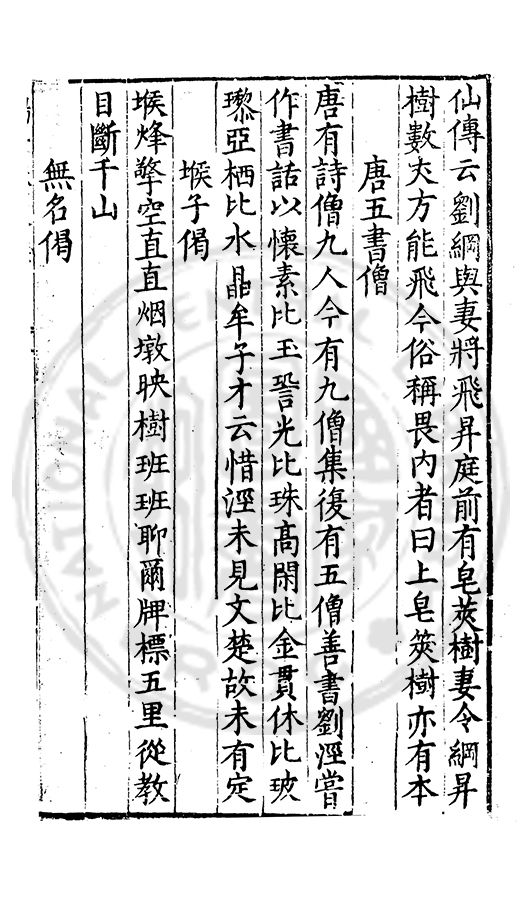 仙傳云劉綱與妻將飛昇庭前有皂莢樹妻令綱昇
樹數丈方能飛今俗稱畏内者曰上皂筴樹亦有本
唐五書僧
唐有詩僧九人今有九僧集復有五僧善書劉涇嘗
作書話以懷素比玉䛒光比珠高閑比金貫休比玻
瓈亞栖比水晶牟子才云惜涇未見文楚故未有定
堠子偈
堠烽擎空直直烟墩映樹班班聊爾牌標五里從教
目斷千山
無名偈